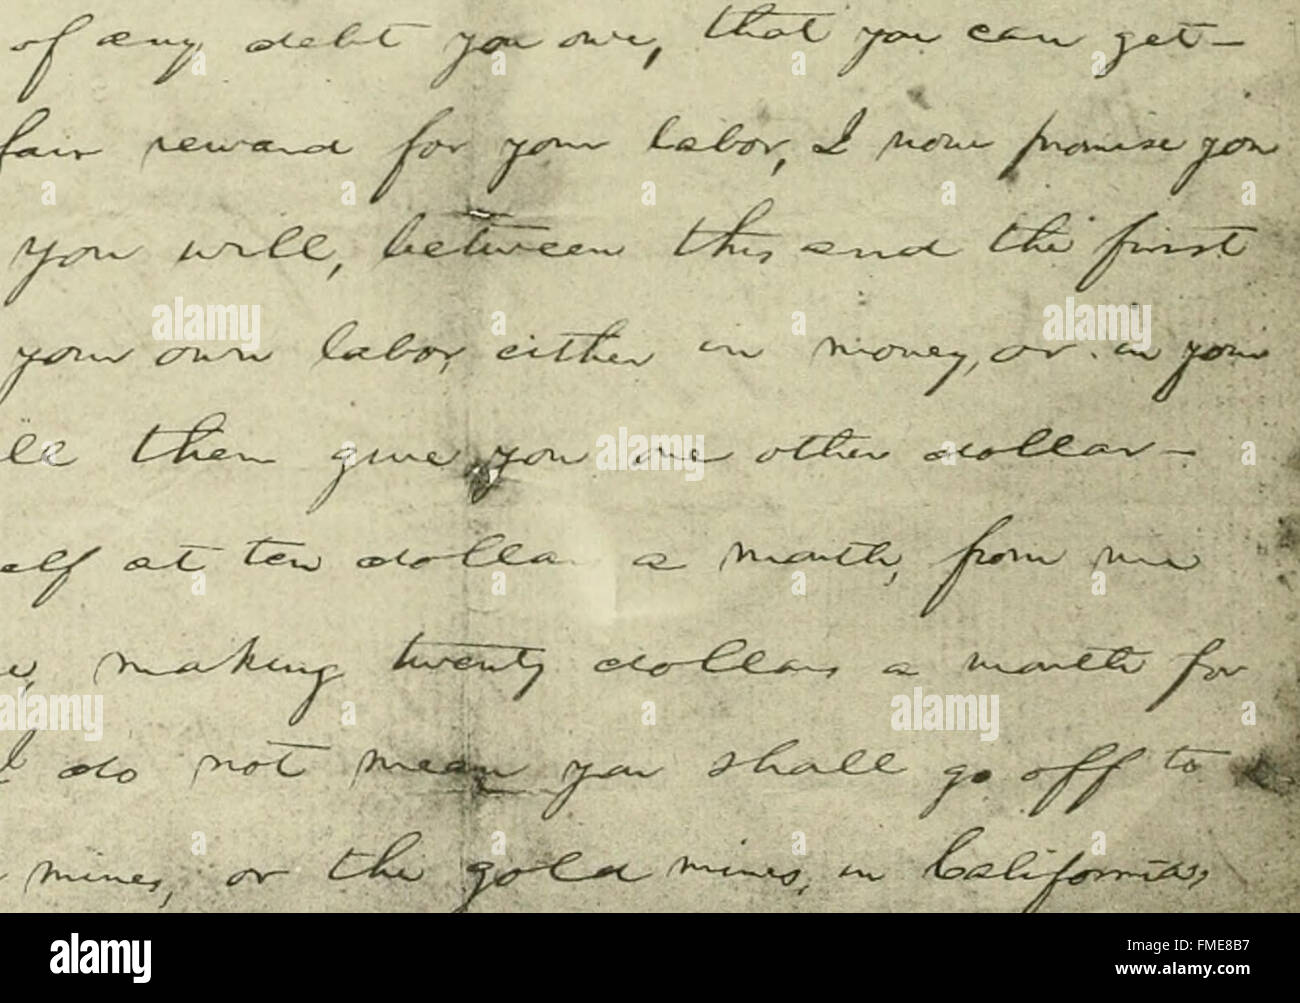 of any debt you owe, that you can get-
fair reward for your labor, I now promise you
you will, between this and the first
your own labor, either in money, or in your
ll then give you one other dollar-
elf at ten dollars a month, from me
making twenty dollars a month for
I do not mean you shall go off to
mines, or the gold mines, in California,
alamy
Image ID: FME8B7
www.alamy.com